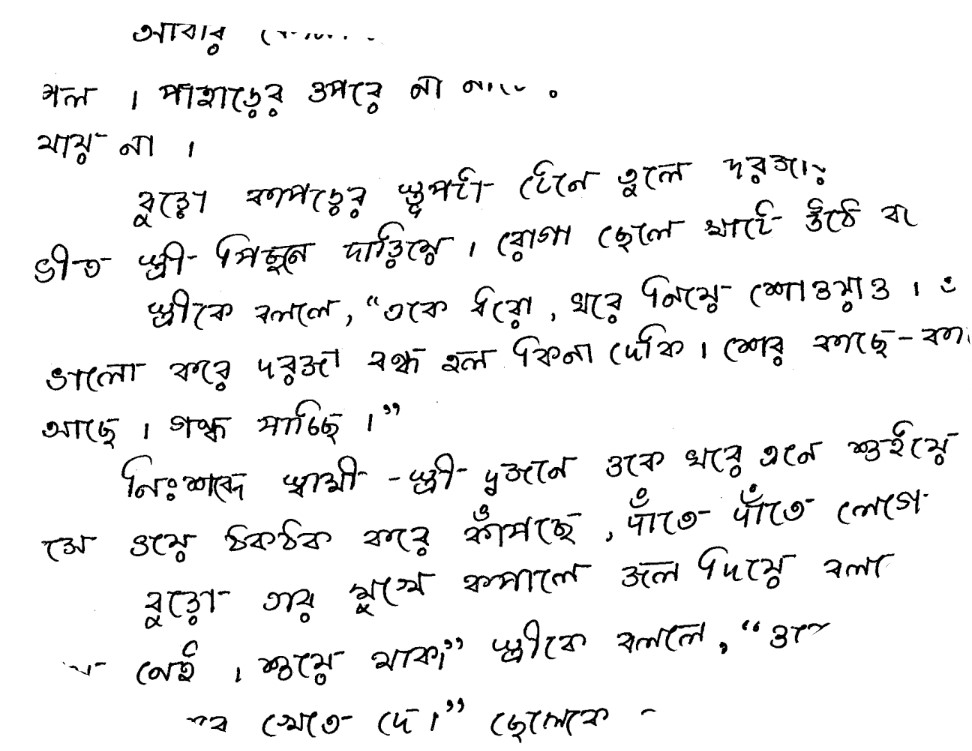 আবার
গেল । পাহাড়ের ওপরে না
যায় না ।
বুড়ো কাপড়ের স্তূপটা টেনে তুলে দরজায়
ভীত স্ত্রী পিছনে দাড়িয়ে । রোগা ছেলে খাটে উঠে
স্ত্রীকে বললে, “একে ধরো, ঘরে নিয়ে শোওয়াও ।
ভালো করে দরজা বন্ধ হল কিনা দেকি । শের কাছে-
আছে । গন্ধ পাচ্ছি ।”
নিঃশব্দে স্বামী-স্ত্রী দুজনে ওকে ঘরে এনে শুইয়ে
সে ভয়ে ঠকঠক করে কাঁপছে, দাঁতে দাঁতে লেগে
বুড়ো তার মুখে কপালে জল দিয়ে
নেই । শুয়ে থাক।” স্ত্রীকে বললে, “
খেতে দে।” ছেলেকে